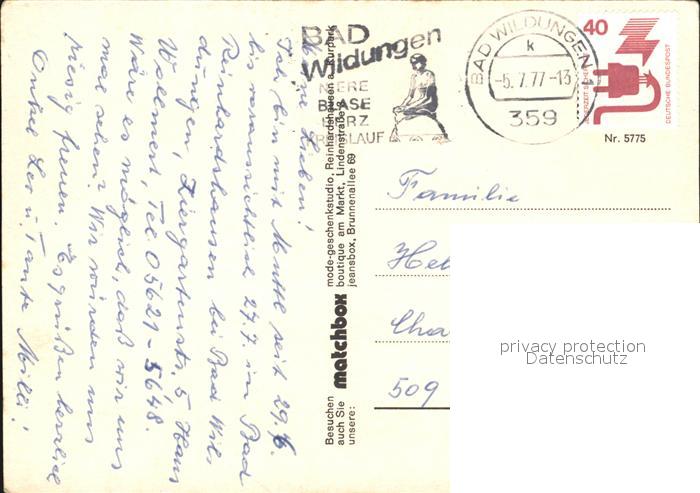 BAD
Wildungen
NIERE
BLASE
HERZ
KREISLAUF
BAD WILDUNGEN 1
k
-5.7.77-13
359
40
JEDERZEIT SICHERHEIT
DEUTSCHE BUNDESPOST
Nr. 5775
Meine Lieben!
Ich bin mit Muttl seit 29.6.
bis voraussichtlich 27.7. in Bad
Reinhardshausen bei Bad Wil-
dungen, Ziergartenstr. 5, Haus
Wollment, Tel. 05621-5648.
Wäre es möglich, daß wir uns
mal sehen? Wir würden uns
riesig freuen. Es grüßen herzlich
Onkel Leo u. Tante Milli!
Besuchen
auch Sie
unsere:
matchbox
mode-geschenkstudio, Reinhardshausen a. Kurpark
boutique am Markt, Lindenstraße
jeansbox, Brunnenallee 69
Familie
Heb
Cha
509
privacy protection
Datenschutz